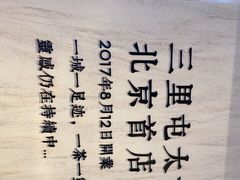 三里屯太
北京首店
2017年8月12日開業
一城一足迹，一茶一
靈感仍在持續中...